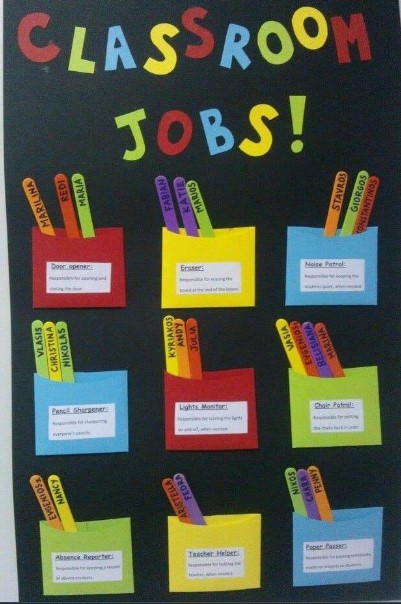 CLASSROOM
JOBS!
MARILINA
REDI
MARIA
FABIAN
KATIE
MARIOS
STAVROS
GIORGOS
KONSTANTINOS
Door opener:
Responsible for opening and
closing the door.
Eraser:
Responsible for erasing the
board at the end of the lesson.
Noise Patrol:
Responsible for keeping the
students quiet, when needed.
VLASIS
CHRISTINA
NIKOLAS
KYRIAKOS
ANDY
JULIA
VASIA
EVGENIOS
MELINA
Pencil Sharpener:
Responsible for sharpening
everyone's pencils.
Lights Monitor:
Responsible for turning the lights
on and off, when needed.
Chair Patrol:
Responsible for putting
the chairs back in order.
EVGENIOS
NANCY
ARISTELLA
FEDRA
NIKOS
PENNY
Absence Reporter:
Responsible for keeping a record
of absent students.
Teacher Helper:
Responsible for helping the
teacher, when needed.
Paper Passer:
Responsible for passing